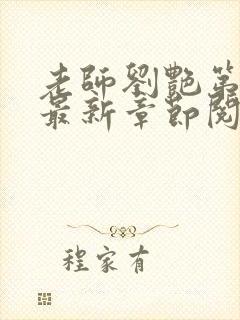 老師劉艷第
最新章節閱
程家有